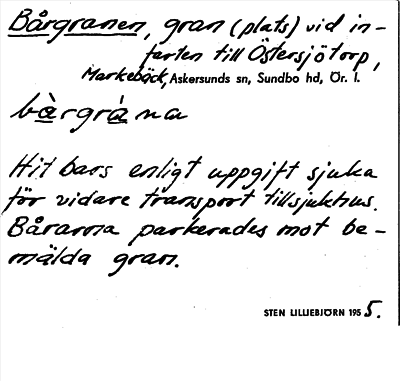 Bårgranen, gran (plats) vid in-
farten till Östersjötorp,
Markebäck, Askersunds sn, Sundbo hd, Ör. l.
bàrgràna
Hit bars enligt uppgift sjuka
för vidare transport till sjukhus.
Bårarna parkerades mot be-
mälda gran.
STEN LILLIEBJÖRN 1955.